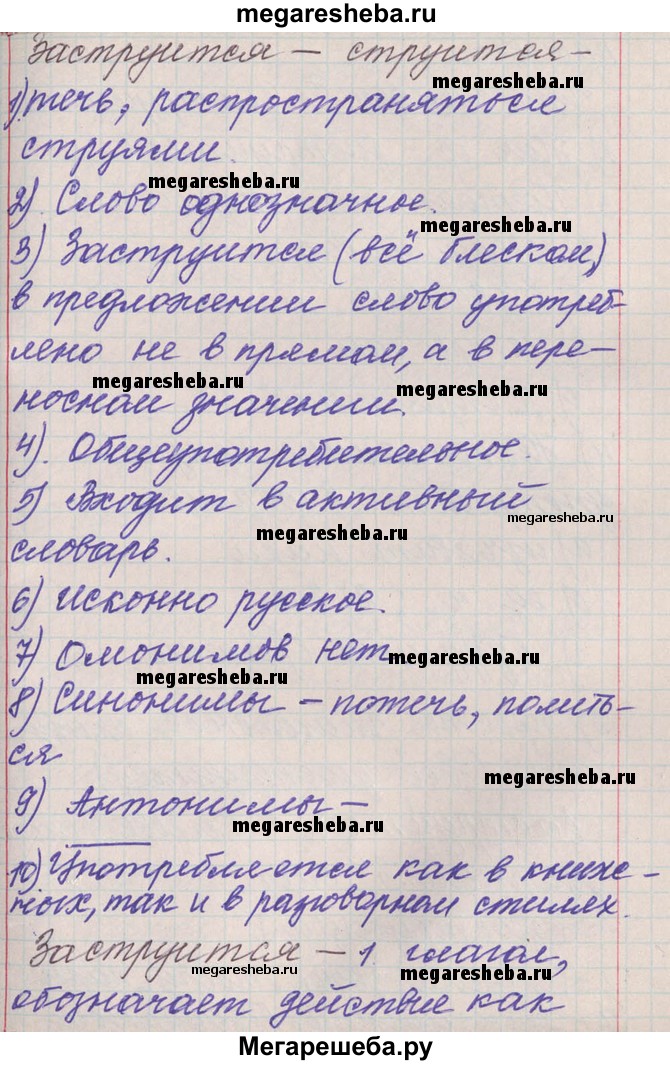 megaresheba.ru
Заструится – струится –
1) течь, распространяться
струями.
megaresheba.ru
2). Слово однозначное.
megaresheba.ru
3) Заструится (всё блеском,)
в предложении слово употреб-
лено не в прямом, а в пере-
megaresheba.ru
megaresheba.ru
носном значении.
4). Общеупотребительное.
5) Входит в активный
megaresheba.ru
megaresheba.ru
словарь.
6) Исконно русское.
7) Омонимов нет
megaresheba.ru
megaresheba.ru
8) Синонимы – потечь, полить-
ся
megaresheba.ru
9) Антонимы –
megaresheba.ru
10) Употребляется как в книж-
ных, так и в разговорном стилях.
Заструится – 1 глагол,
megaresheba.ru
megaresheba.ru
обозначает действие как
Мегарешеба.ру